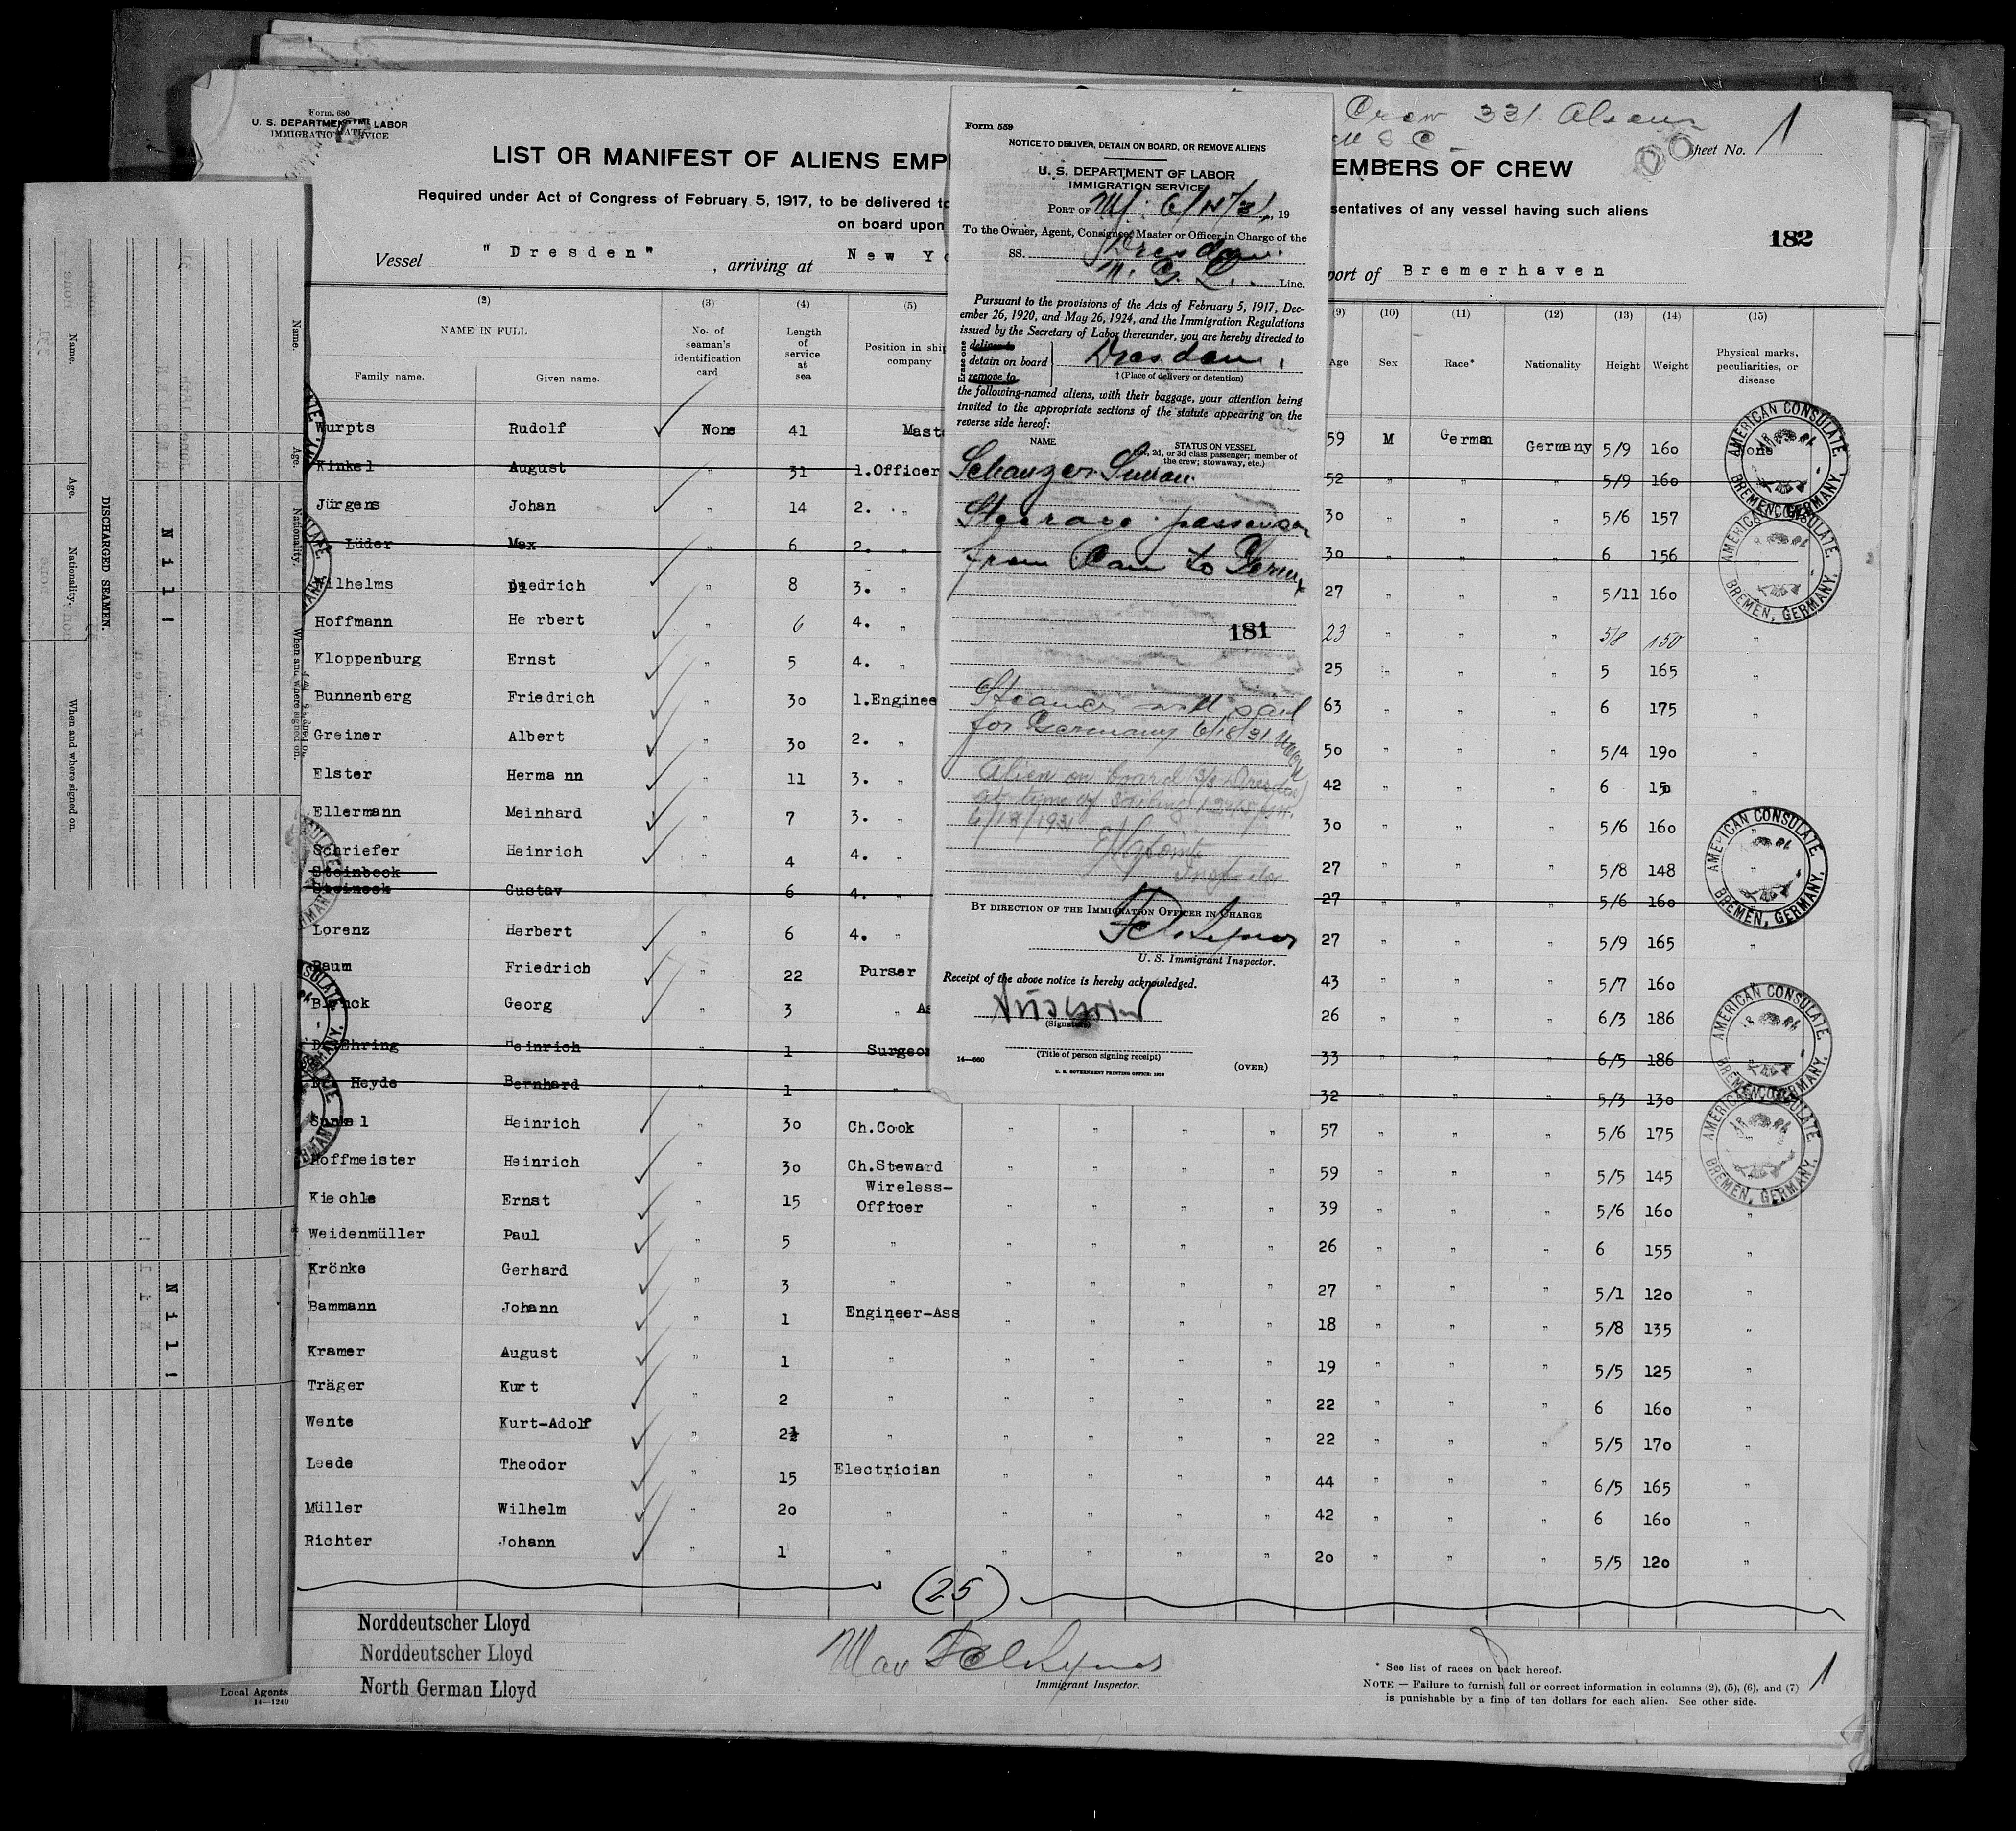 Form. 680
U. S. DEPARTMENT OF LABOR
IMMIGRATION SERVICE
Crew 331 Aliens
U S C
Sheet No. 1
LIST OR MANIFEST OF ALIENS EMP
EMBERS OF CREW
Required under Act of Congress of February 5, 1917, to be delivered to
sentatives of any vessel having such aliens
on board upon
182
Vessel "Dresden", arriving at New Yo
port of Bremerhaven
(2) (3) (4) (5) (9) (10) (11) (12) (13) (14) (15)
NAME IN FULL
Family name. Given name.
No. of seaman's identification card
Length of service at sea
Position in ship company
Age Sex Race* Nationality Height Weight
Physical marks, peculiarities, or disease
Wurpts Rudolf None 41 Mast 59 M German Germany 5/9 160 None
Kinkel August " 31 1.Officer 52 " " " 5/9 160
Jürgens Johan " 14 2. " 30 " " " 5/6 157
Lüder Max " 6 2. " 30 " " " 6 156 "
Wilhelms Diedrich " 8 3. " 27 " " " 5/11 160
Hoffmann Herbert " 6 4. " 23 " " " 5/8 150 "
Kloppenburg Ernst " 5 4. " 25 " " " 5 165 "
Bunnenberg Friedrich " 30 1.Enginee 63 " " " 6 175 "
Greiner Albert " 30 2. " 50 " " " 5/4 190 "
Elster Hermann " 11 3. " 42 " " " 6 150 "
Ellermann Meinhard " 7 3. " 30 " " " 5/6 160 "
Schriefer Heinrich " 4 4. " 27 " " " 5/8 148 "
Steinbock
Steineck Gustav " 6 4. " 27 " " " 5/6 160
Lorenz Herbert " 6 4. " 27 " " " 5/9 165 "
Baum Friedrich " 22 Purser 43 " " " 5/7 160
Georg " 3 " As 26 " " " 6/3 186
Dr.Ehring Heinrich " 1 Surgeon 33 " " " 6/5 186
Heyde Bernhard " 1 " 32 " " " 5/3 130
Heinrich " 30 Ch.Cook " " " " 57 " " " 5/6 175
Hoffmeister Heinrich " 30 Ch.Steward " " " " 59 " " " 5/5 145
Wireless-
Kiechle Ernst " 15 Officer " " " " 39 " " " 5/6 160 "
Weidenmüller Paul " 5 " " " " " 26 " " " 6 155 "
Krönke Gerhard " 3 " " " " " 27 " " " 5/1 120 "
Bammann Johann " 1 Engineer-Ass " " " " 18 " " " 5/8 135 "
Kramer August " 1 " " " " " 19 " " " 5/5 125 "
Träger Kurt " 2 " " " " " 22 " " " 6 160 "
Wente Kurt-Adolf " 2½ " " " " " 22 " " " 5/5 170 "
Leede Theodor " 15 Electrician " " " " 44 " " " 6/5 165 "
Müller Wilhelm " 20 " " " " " 42 " " " 6 160 "
Richter Johann " 1 " " " " " 20 " " " 5/5 120 "
(25)
Norddeutscher Lloyd
Norddeutscher Lloyd
North German Lloyd
Local Agents
14—1240
Immigrant Inspector.
* See list of races on back hereof.
NOTE — Failure to furnish full or correct information in columns (2), (5), (6), and (7)
is punishable by a fine of ten dollars for each alien. See other side.
1
Form 559
NOTICE TO DELIVER, DETAIN ON BOARD, OR REMOVE ALIENS
U. S. DEPARTMENT OF LABOR
IMMIGRATION SERVICE
PORT OF 19
To the Owner, Agent, Consignee, Master or Officer in Charge of the
SS. Dresden.
N. G. L. Line.
Pursuant to the provisions of the Acts of February 5, 1917, Dec-
ember 26, 1920, and May 26, 1924, and the Immigration Regulations
issued by the Secretary of Labor thereunder, you are hereby directed to
Erase one
deliver to
detain on board Dresden,
remove to
† (Place of delivery or detention)
the following-named aliens, with their baggage, your attention being
invited to the appropriate sections of the statute appearing on the
reverse side hereof:
NAME
STATUS ON VESSEL
(1st, 2d, or 3d class passenger; member of
the crew; stowaway, etc.)
Steerage passenger
from Can to Germ
181
Steamer will sail
for Germany 6/18/31
Alien on board S/S Dresden
at time of sailing
6/18/1931
BY DIRECTION OF THE IMMIGRATION OFFICER IN CHARGE
U. S. Immigrant Inspector.
Receipt of the above notice is hereby acknowledged.
(Signature)
(Title of person signing receipt)
14—660
U. S. GOVERNMENT PRINTING OFFICE
(OVER)
AMERICAN CONSULATE. BREMEN, GERMANY.
AMERICAN CONSULATE. BREMEN, GERMANY.
AMERICAN CONSULATE. BREMEN, GERMANY.
AMERICAN CONSULATE. BREMEN, GERMANY.
AMERICAN CONSULATE. BREMEN, GERMANY.
DISCHARGED SEAMEN.
Name. Age. Nationality. When and where signed on.
Nill
Name. Age. Nationality. When and where signed on.
Nill